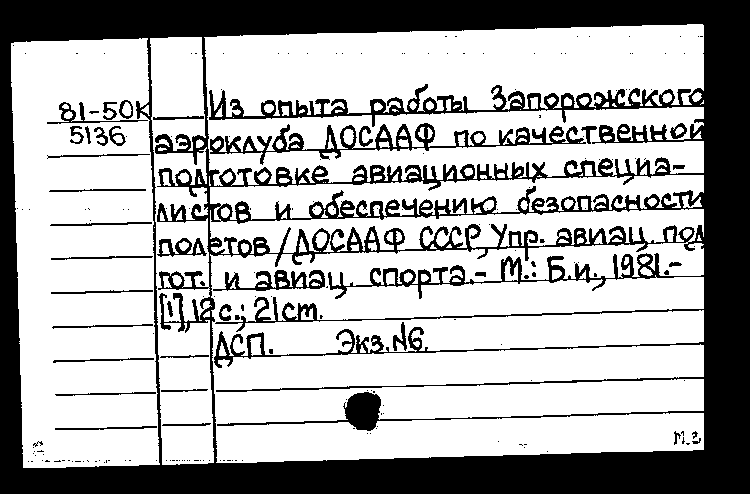 81-50К Из опыта работы Запорожского
5136 аэроклуба ДОСААФ по качественной
подготовке авиационных специа-
листов и обеспечению безопасности
полетов/ДОСААФ СССР, Упр. авиац. под
гот. и авиац. спорта.- М.: Б.и., 1981.-
[1], 12 с.; 21 ст.
ДСП. Экз.№6.
М.З